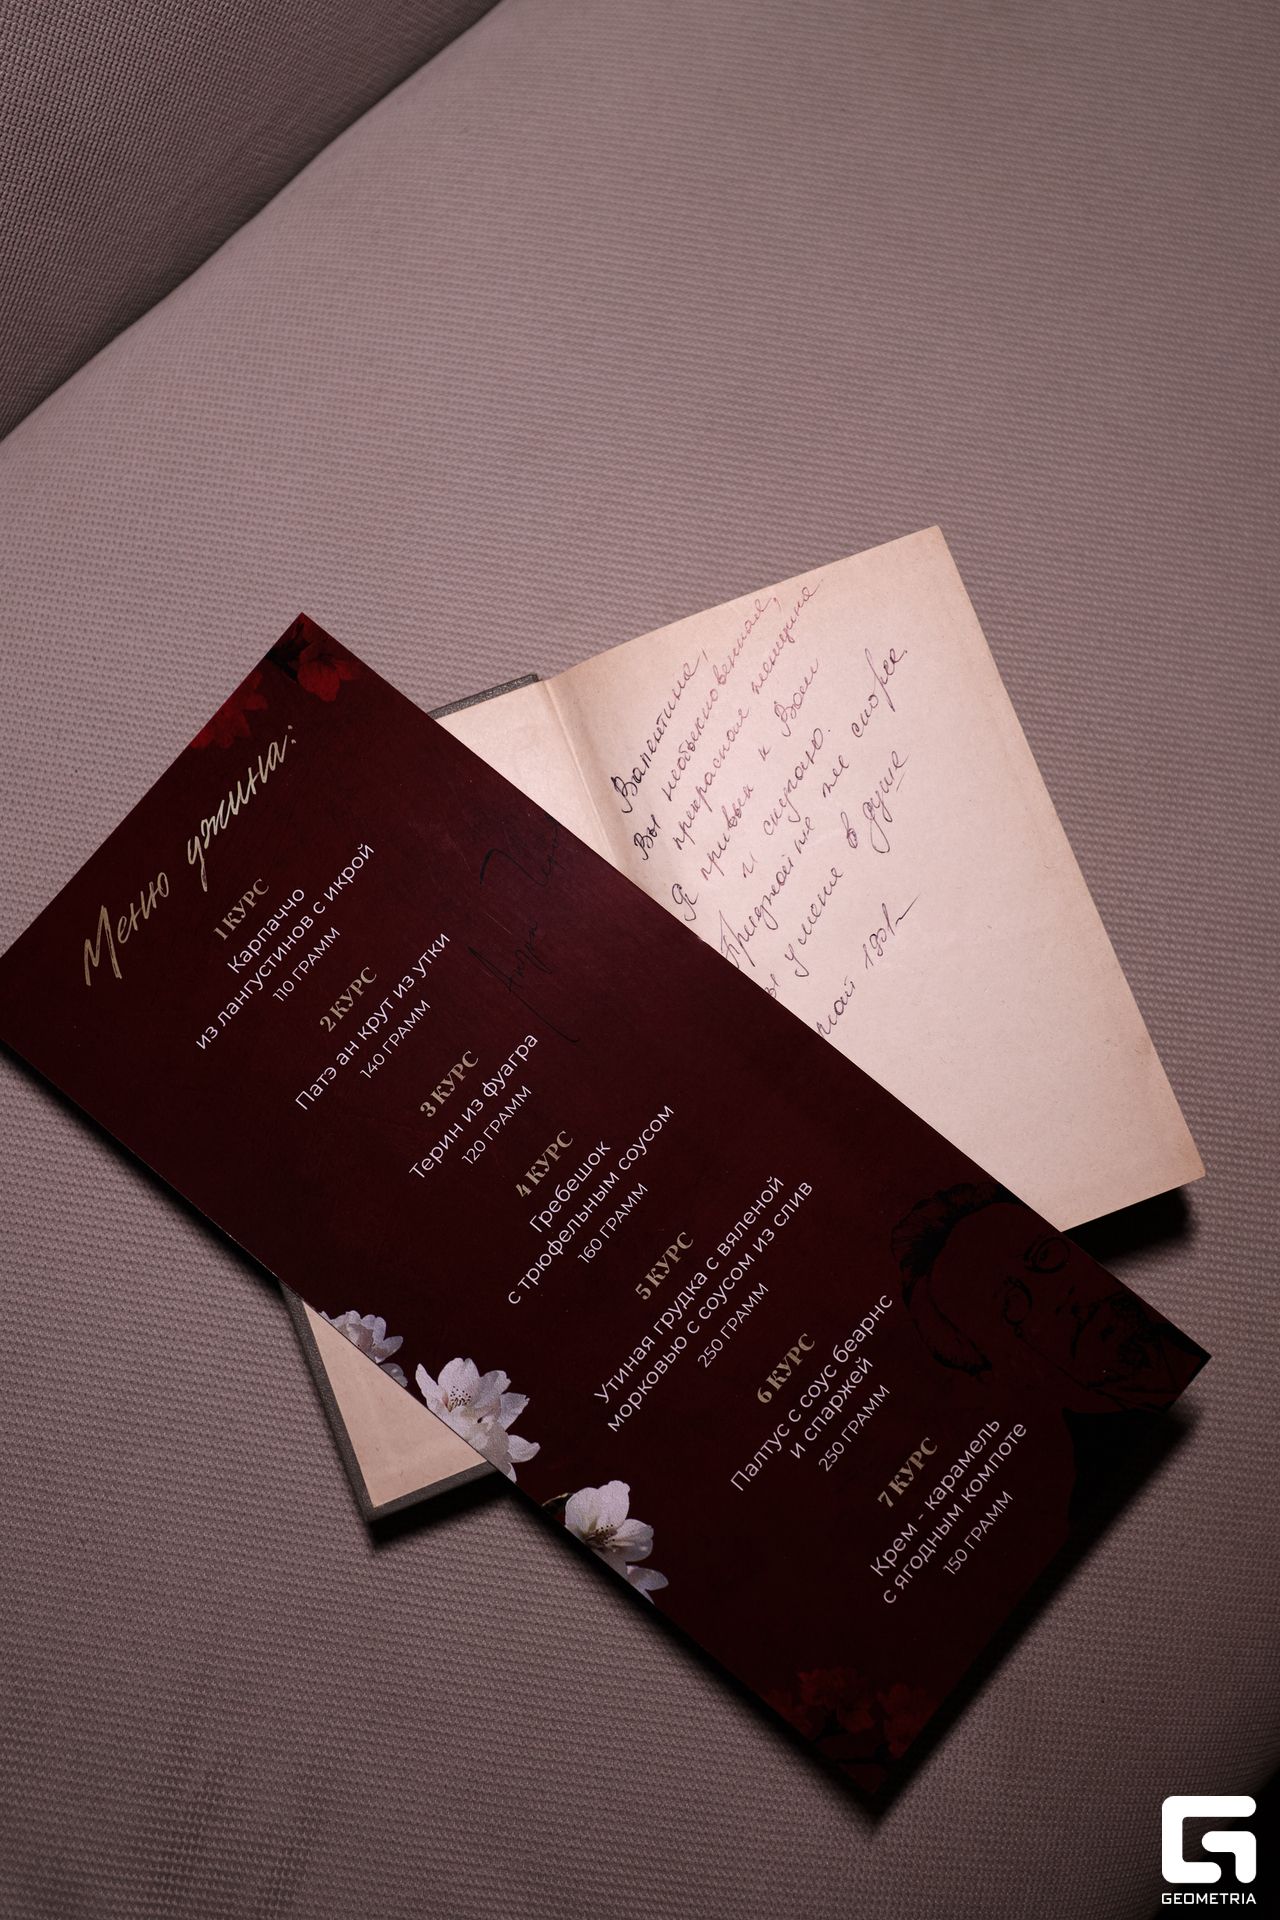 Меню ужина:
1 КУРС
Карпаччо
из лангустинов с икрой
110 ГРАММ
2 КУРС
Патэ ан крут из утки
140 ГРАММ
3 КУРС
Терин из фуагра
120 ГРАММ
4 КУРС
Гребешок
с трюфельным соусом
160 ГРАММ
5 КУРС
Утиная грудка с вяленой
морковью с соусом из слив
250 ГРАММ
6 КУРС
Палтус с соус беарнс
и спаржей
250 ГРАММ
7 КУРС
Крем - карамель
с ягодным компоте
150 ГРАММ
Валентина,
Вы необыкновенная,
прекрасная женщина
Я привык к Вам
и скучаю.
Приезжайте скоро.
Вы у меня в душе
май
GEOMETRIA